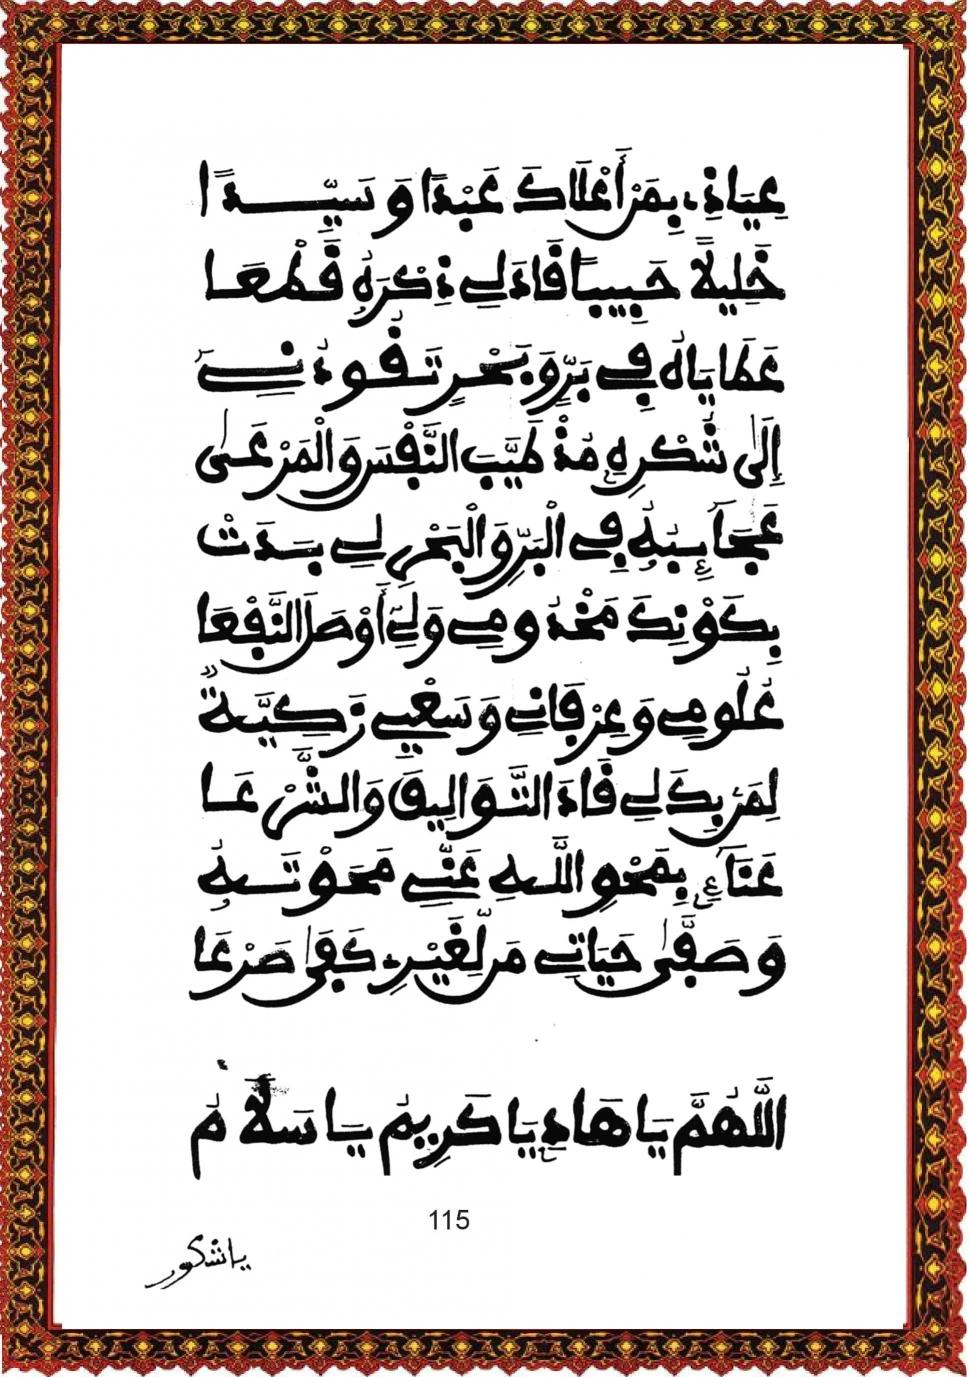 عِيَاذِي بِمَنْ أَعْلَاكَ عَبْدًا وَسَيِّدًا
خَلِيلًا حَبِيبًا قَادَ لِي ذِكْرُهُ قَطْعَا
عَطَايَاهُ فِي بَرٍّ وَبَحْرٍ تَقُودُنِي
إِلَى شُكْرِهِ مُذْ طَيَّبَ النَّفْسَ وَالْمَرْعَى
عَجَائِبُهُ فِي الْبَرِّ وَالْبَحْرِ لِي بَدَتْ
بِكَوْنِكَ مَخْدُومِي وَلِي أَوْصَلَ النَّفْعَا
عُلُومِي وَعِرْفَانِي وَسَعْيِي زَكِيَّةٌ
لِمَنْ بِكَ لِي قَادَ التَّوَالِيفَ وَالشَّرْعَا
عَنَائِي بِمَحْوِ اللَّهِ عَنِّي مَحَوْتَهُ
وَصَفَّى حَيَاتِي مَنْ لِغَيْرِي كَفَى صَرْعَا
اللَّهُمَّ يَا هَادِي يَا كَرِيمُ يَا سَلَامُ
115
يا شكور